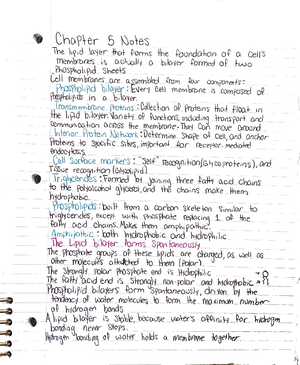 Chapter 5 Notes
The lipid layer that forms the foundation of a cell's
membranes is actually a bilayer formed of two
Phospholipid sheets
Cell membranes are assembled from four components:
Phospholipid bilayer: Every cell membrane is composed of
Phospholipids in a bilayer.
Transmembrane Proteins: Collection of Proteins that float in
the lipid bilayer. Variety of functions, including transport and
communication across the membrane. They can move around
Interior Protein Network: Determine Shape of cell, and anchor
Proteins to specific sites, important for receptor-mediated
endocytosis
Cell Surface markers: "Self" recognition (glycoproteins), and
tissue recognition (glycolipid)
Triglycerides: Formed by joining three fatty acid chains
to the polyalcohol glycerol, and the chains make them
hydrophobic.
Phospholipids: built from a carbon skeleton similar to
triglycerides, except with phosphate replacing 1 of the
fatty acid chains. Makes them amphipathic.
Amphipathic: both hydrophobic and hydrophilic
The Lipid bilayer forms Spontaneously
The phosphate groups of these lipids are charged, as well as
other molecules attached to them (Polar).
The Strongly Polar phosphate end is Hydrophilic
The fatty acid end is Strongly non-polar and hydrophobic
Phospholipid bilayers form spontaneously, driven by the
tendency of water molecules to form the maximum number
of hydrogen bonds
A lipid bilayer is stable, because water's affinity for hydrogen
bonding never stops.
Hydrogen bonding of water holds a membrane together.